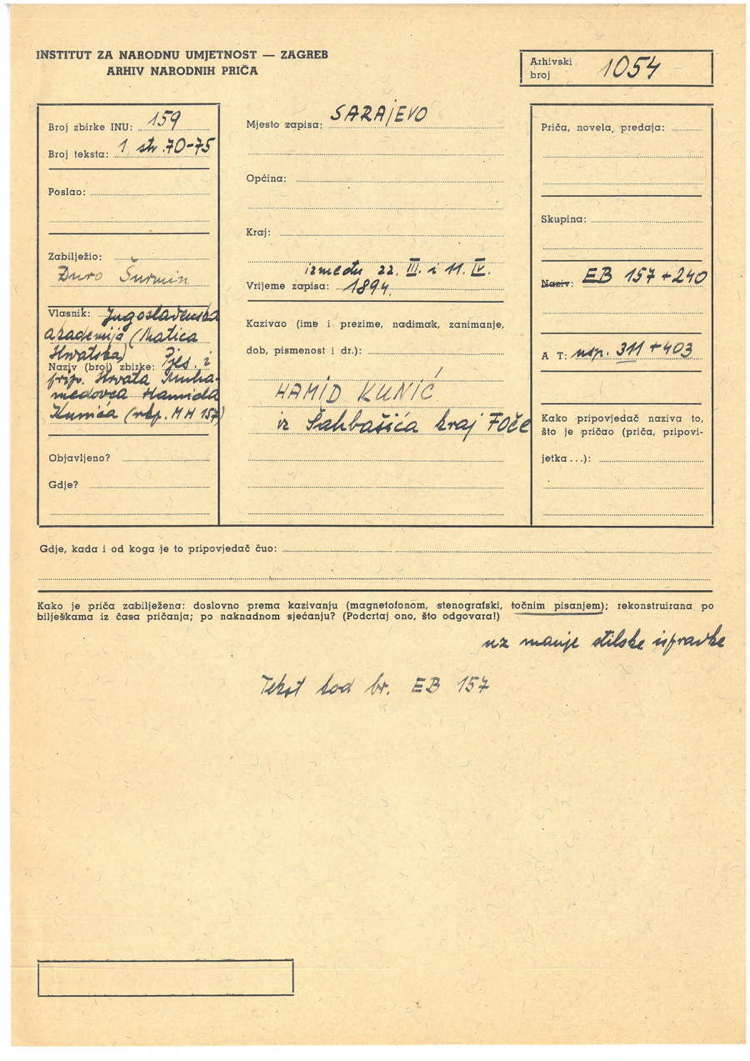 INSTITUT ZA NARODNU UMJETNOST — ZAGREB
ARHIV NARODNIH PRIČA
Arhivski broj 1054
Broj zbirke INU: 159
Broj teksta: 1, str. 70-75
Poslao:
Zabilježio:
Đuro Šurmin
Vlasnik: Jugoslavenska
akademija (Matica
Hrvatska)
Naziv (broj) zbirke: Pjes. i
prip. Hrvata Muha-
medovca Hamida
Kunića (rkp. MH 157)
Objavljeno?
Gdje?
Mjesto zapisa: SARAJEVO
Općina:
Kraj:
između 22. III. i 11. IV.
Vrijeme zapisa: 1894.
Kazivao (ime i prezime, nadimak, zanimanje,
dob, pismenost i dr.):
HAMID KUNIĆ
iz Šahbašića kraj Foče
Priča, novela, predaja:
Skupina:
Naziv: EB 157 + 240
A T: usp. 311 + 403
Kako pripovjedač naziva to,
što je pričao (priča, pripovi-
jetka . . .):
Gdje, kada i od koga je to pripovjedač čuo:
Kako je priča zabilježena: doslovno prema kazivanju (magnetofonom, stenografski, točnim pisanjem); rekonstruirana po
bilješkama iz časa pričanja; po naknadnom sjećanju? (Podcrtaj ono, što odgovara!)
uz manje stilske ispravke
Tekst kod br. EB 157